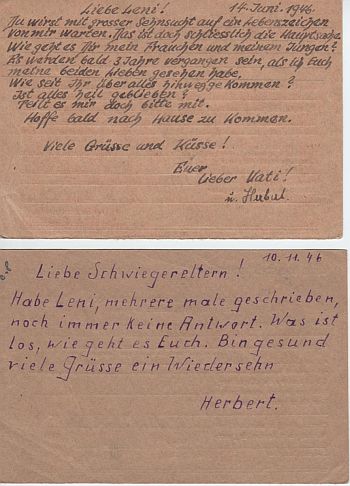 Liebe Leni! 14. Juni 1946.
Du wirst mit grosser Sehnsucht auf ein Lebenszeichen
von mir warten. Das ist doch schliesslich die Hauptsache.
Wie geht es Dir mein Frauchen und meinem Jungen?
Es werden bald 3 Jahre vergangen sein, als ich Euch
meine beiden Lieben gesehen habe.
Wie seit Ihr über alles hinweggekommen?
Ist alles heil geblieben?
Teilt es mir doch bitte mit.
Hoffe bald nach Hause zu kommen.
Viele Grüsse und Küsse!
Euer
lieber Vati!
u. Herbert.
10.11.46
Liebe Schwiegereltern!
Habe Leni, mehrere male geschrieben,
noch immer keine Antwort. Was ist
los, wie geht es Euch. Bin gesund
viele Grüsse ein Wiedersehn
Herbert.